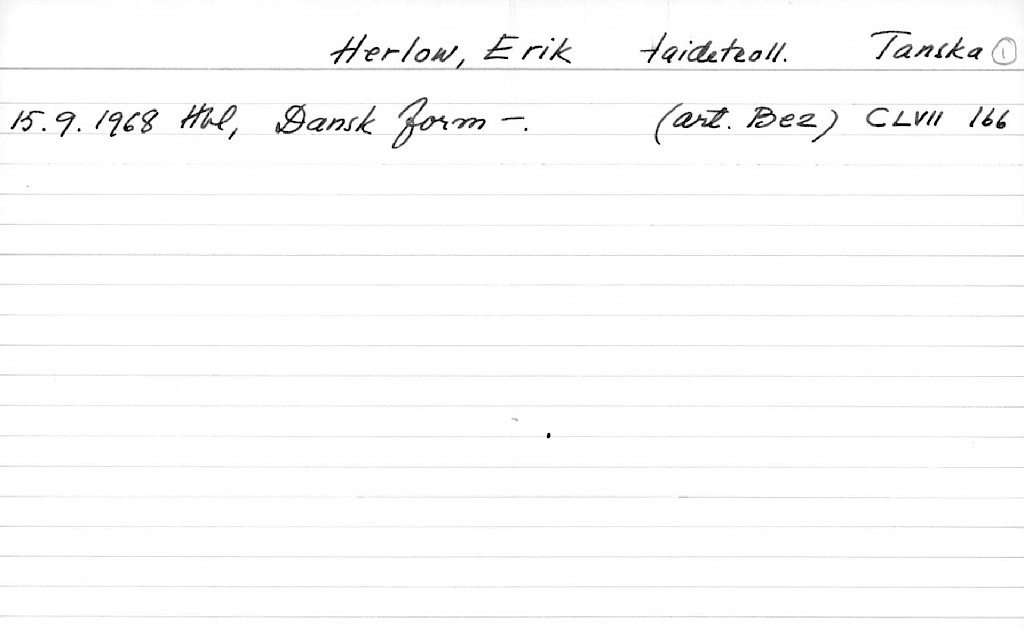 Herlow, Erik taideteoll. Tanska ①
15.9.1968 Hbl, Dansk form -. (art. Bez) CLVII 166